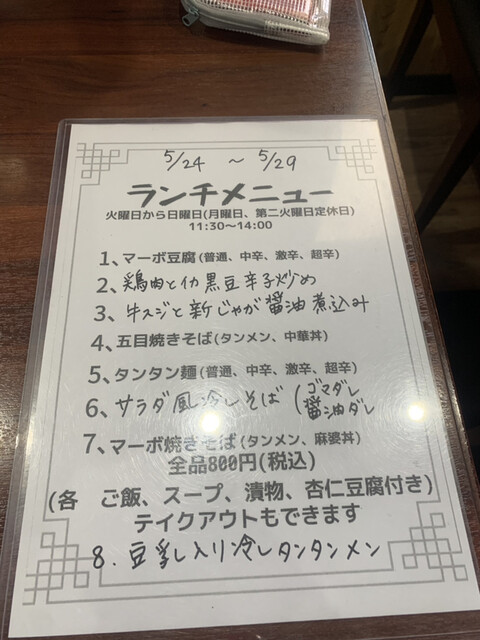 5/24 ～ 5/29
ランチメニュー
火曜日から日曜日(月曜日、第二火曜日定休日)
11:30～14:00
1、マーボ豆腐(普通、中辛、激辛、超辛)
2、鶏肉とイカ黒豆辛子炒め
3、牛スジと新じゃが醤油煮込み
4、五目焼きそば(タンメン、中華丼)
5、タンタン麺(普通、中辛、激辛、超辛)
6、サラダ風冷しそば(ゴマダレ
醤油ダレ
7、マーボ焼きそば(タンメン、麻婆丼)
全品800円(税込)
(各　ご飯、スープ、漬物、杏仁豆腐付き)
テイクアウトもできます
8.豆乳入り冷しタンタンメン